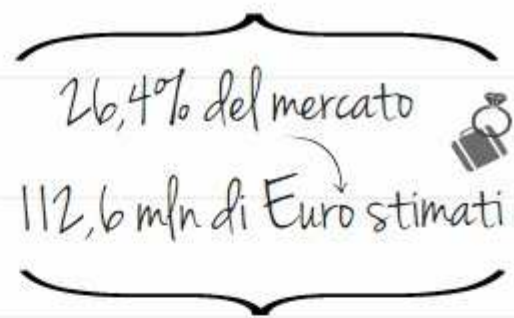 26,4% del mercato
112,6 mln di Euro stimati